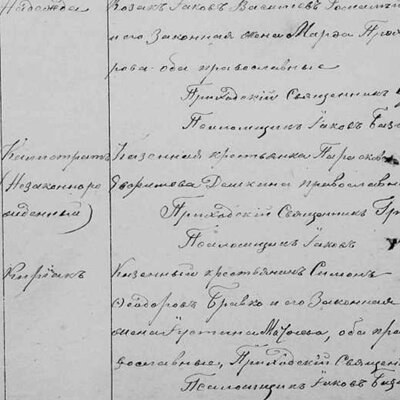 Надежда
Козакъ Іаковъ Васильевъ
и его Законная жена Марѳа Про
рова оба православные
Приходскій Священникъ
Псаломщикъ Іаковъ
Каллистратъ
(Незаконноро
жденный)
Казенная крестьянка Параск
Дешкина православн
Приходскій Священникъ Гр
Псаломщикъ Іаковъ
Киріакъ
Казенный крестьянинъ Симонъ
Ѳеодоровъ Бравко и его Законная
жена Іустина оба пра
вославные, Приходскій Священ
Псаломщикъ Іаковъ